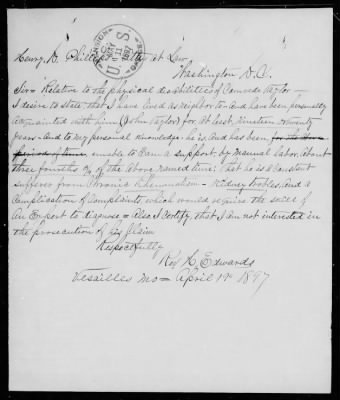 Henry D. Phillips Atty at Law
Washington D.C.
U.S.
Sir = Relative to the physical disabilities of Taylor =
I desire to state that I have lived as neighbor to and have been personally
acquainted with him (John Taylor) for at least, nineteen or twenty
years = and to my personal knowledge he is and has been for the time
period of time, unable to Earn a support by manual labor about
three fourths of the above named time; that he is a Constant
sufferer from Chronic Rheumatism = Kidney troubles, and a
Complication of Complaints which would require the skill of
an Expert to diagnose = also I certify, that I am not interested in
the prosecution of his Claim
Respectfully
Edwards
Versailles Mo = April 1897